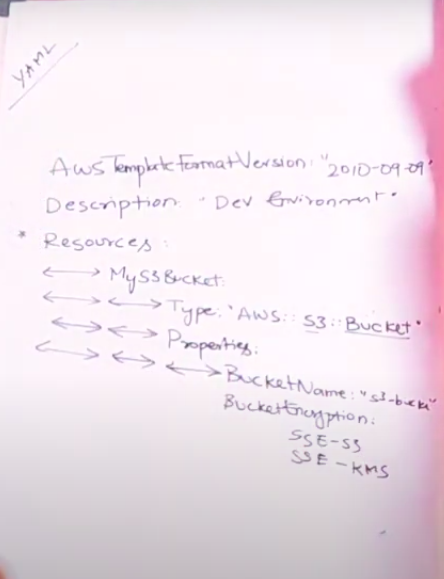 YAML
AWSTemplateFormatVersion: "2010-09-09"
Description: "Dev Environment"
* Resources:
MyS3Bucket:
Type: "AWS::S3::Bucket"
Properties:
BucketName: "s3-bucket"
BucketEncryption:
SSE-S3
SSE-KMS